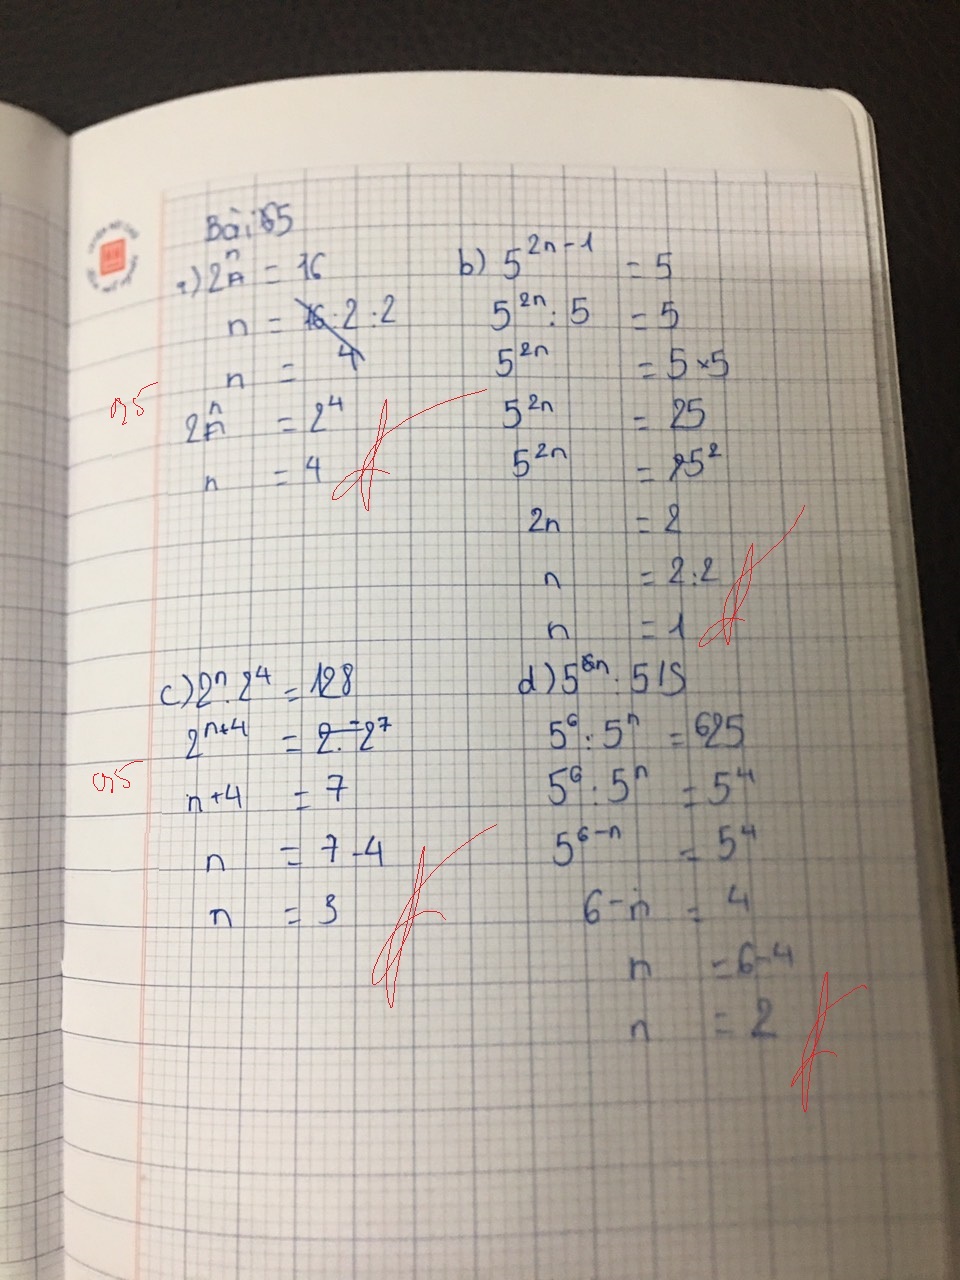 Bài 65
a) 2ⁿ = 16
n = 16:2:2
n = 4
0,5
2ⁿ = 2⁴
n = 4
b) 5²ⁿ⁻¹ = 5
5²ⁿ : 5 = 5
5²ⁿ = 5×5
5²ⁿ = 25
5²ⁿ = 25²
2n = 2
n = 2:2
n = 1
c) 2ⁿ . 2⁴ = 128
2ⁿ⁺⁴ = 2⁷
0,5
n+4 = 7
n = 7-4
n = 3
d) 5⁶ⁿ : 515
5⁶ : 5ⁿ = 625
5⁶ : 5ⁿ = 5⁴
5⁶⁻ⁿ = 5⁴
6-n = 4
n = 6-4
n = 2